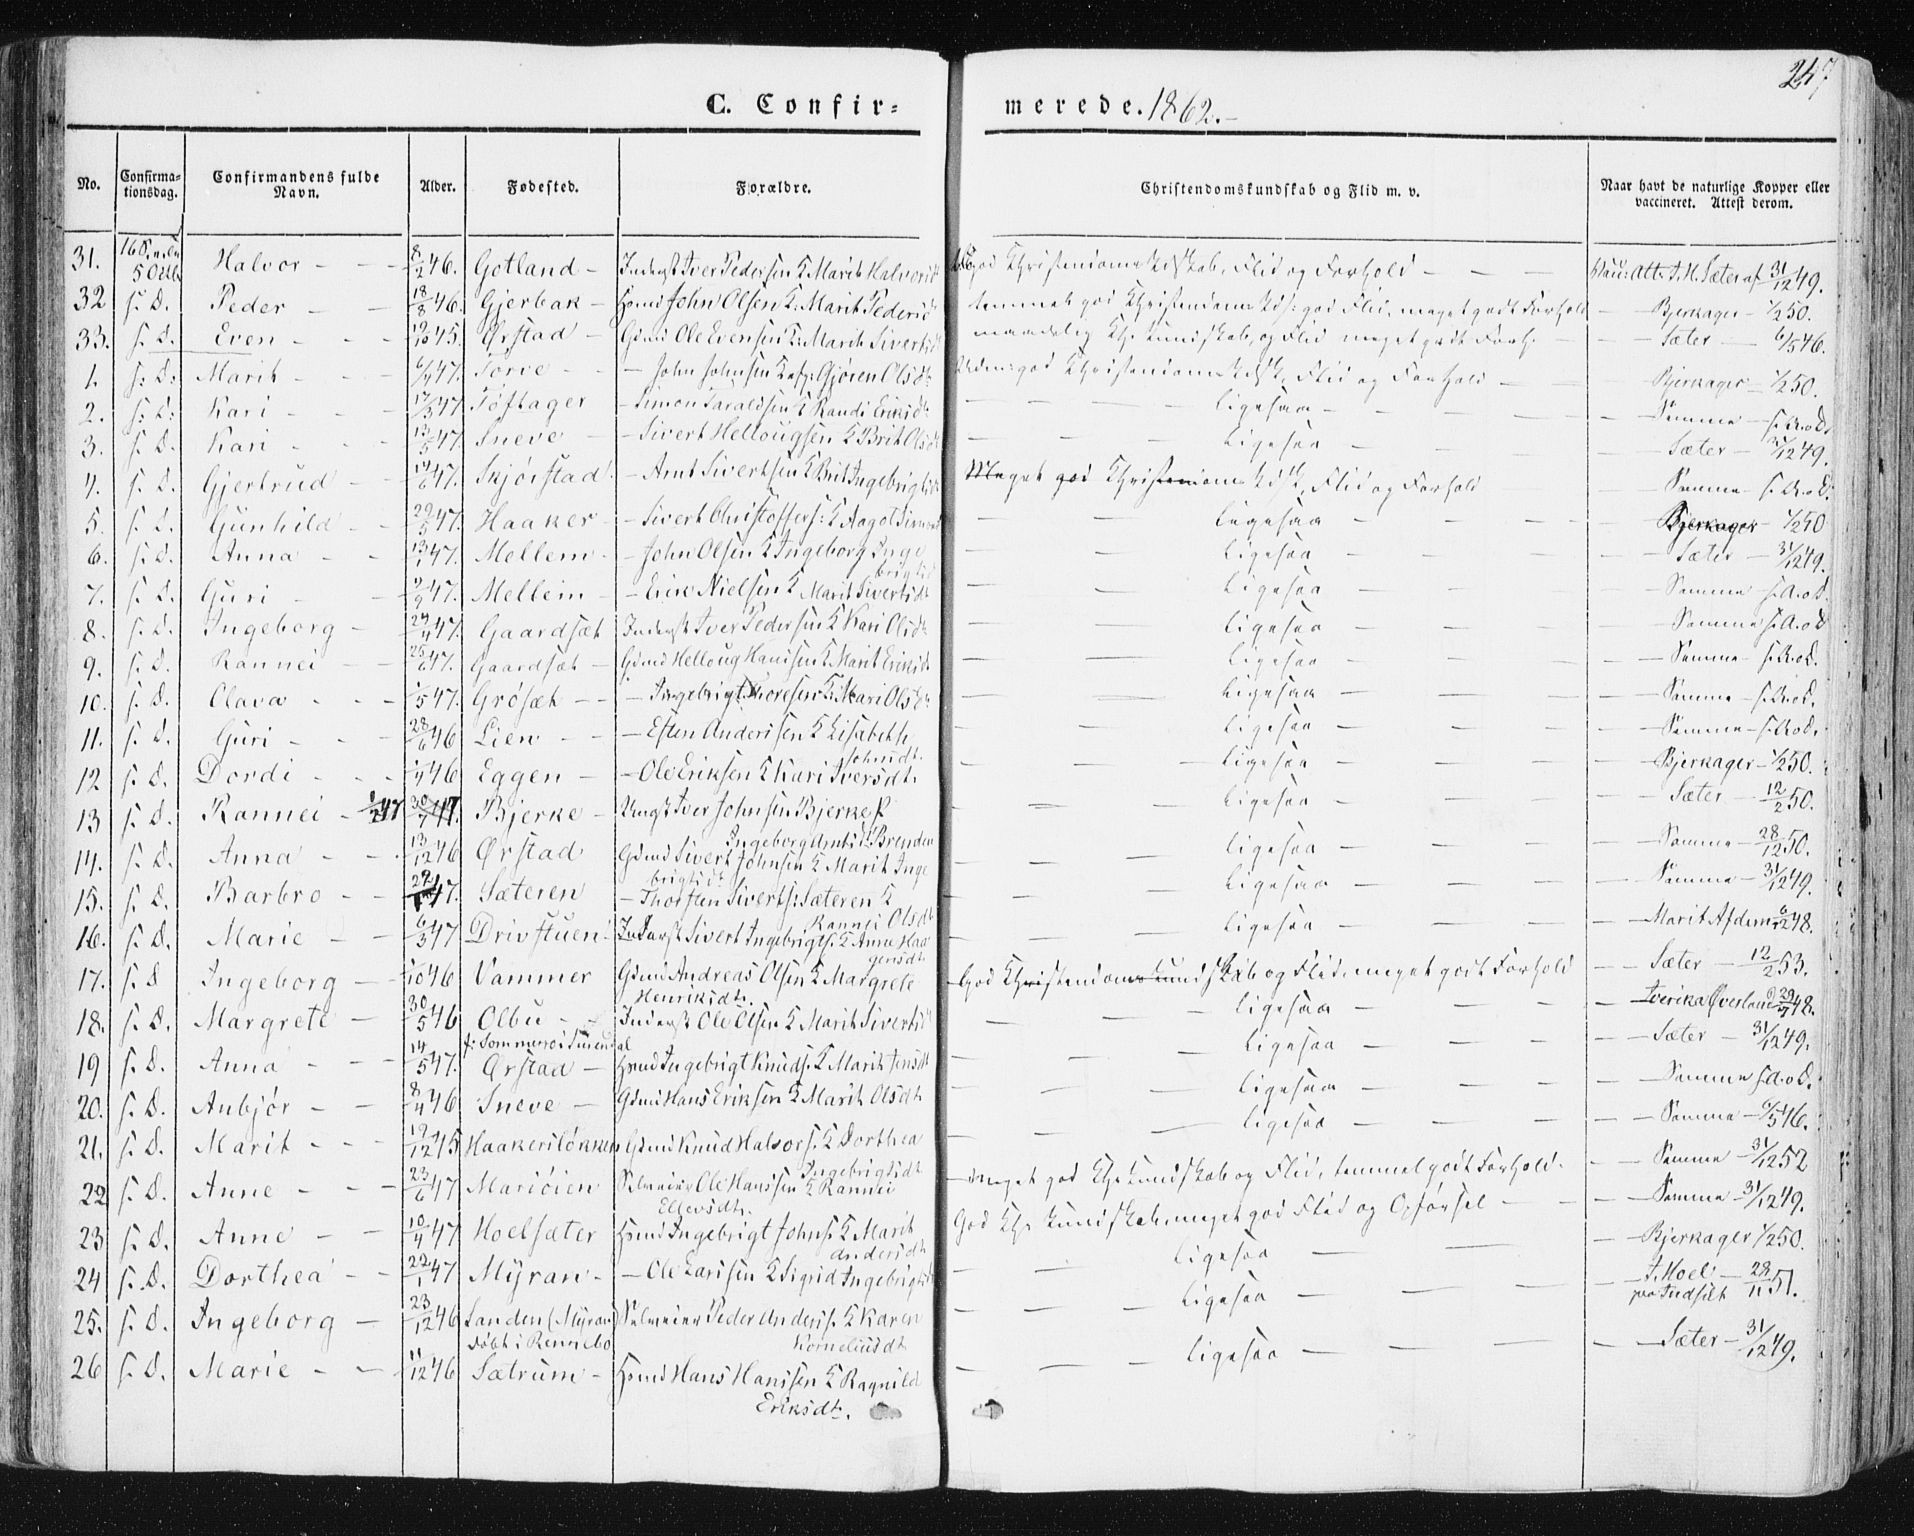 247
C. Confir= merede. 1862.
No. Confirma-tionsdag. Confirmandens fulde Navn. Alder. Fødested. Forældre. Christendomskundskab og Flid m. v. Naar havt de naturlige Kopper eller vaccineret. Attest derom.
31. 5 Octb Halvor - - 8/2 46. Gotland - Inderst Iver Pedersen & Marit Halvorsd god Christendomskdskab, Flid og Forhold - - - Att. Sæter af 31/12 49.
32 s. D. Peder - - 18/8 46. Gjerbak - Hsmd John Olsen & Marit Pedersd temmel god Christendomskdsk: god Flid, meget godt Forhold - Bjerkager - 1/2 50.
33. s. D. Even - - 45. Ørstad - Gdmd Ole Evensen & Marit Sivertsdt maadelig Chr. Kundskab, og Flid meget godt Forh. - - - Sæter - 6/5 46.
1. s. D. Marit - - 47. Torve - - John Johnsen & Gjøren Olsdt god Christendomskdsk, Flid og Forhold - - Bjerkager - 1/2 50.
2. s. D. Kari - - 17/3 47. Toftager - Simon Taraldsen & Randi Eriksdt - - - ligesaa - - - - Samme - s. A. o. D.
3. s. D. Kari - - 13/5 47. Sneve - - Sivert Hellougsen & Brit Olsdt - - - ligesaa - - - Sæter - 31/12 49.
4. s. D. Gjertrud - 14/6 47. Skjørstad - Arnt Sivertsen & Brit Ingebrigtsdt Meget god Christendomskdsk, Flid og Forhold - - Samme - s. A. o. D.
5. s. D. Gunhild - 29/5 47. Haaker - - Sivert Christoffers: & Aagot Simonsd - - - ligesaa - - - - Bjerkager - 1/2 50
6. s. D. Anna - - 13/1 47. Mellem - - John Olsen & Ingeborg Inge
brigtsd - - ligesaa - - - - Sæter - 31/12 49.
7. s. D. Guri - - 47. Mellem - - Erik Nielsen & Marit Sivertsdt - - ligesaa - - - Samme s. A. o. D.
8. s. D. Ingeborg - 29/4 47. Gaardsæt Inderst Iver Pedersen & Kari Olsdt - - ligesaa - - - Samme s. A. o. D
9. s. D. Rannei - - 25/6 47. Gaardsæt - Gdmd Helloug Hansen & Marit Eriksdt - - ligesaa - - - Samme - s. A. o. D.
10. s. D. Olava - - - 1/5 47. Grøsæt - - - Ingebrigt Thoresen & Kari Olsdt - - ligesaa - - - Samme - s. A. o. D.
11. s. D. Guri - - - 28/6 46 Lien - - - Esten Andersen & Lisabeth
Johnsdt. - - ligesaa - - - Samme - s. A. o. D.
12 s. D. Dordi - - - 46 Eggen - - Ole Eriksen & Kari Iversdt. - - ligesaa - - - Bjerkager - 1/2 50.
13 s. D. Rannei - 47 30/7 47. Bjerke - Ungk Iver Johnsen Bjerke &
Ingeborg Arntsdt. Brenden - - ligesaa - - - Sæter - 12/2 50.
14. s. D. Anna - - - 13/12 46 Ørstad Gdmd Sivert Johnsen & Marit Inge
brigtsdt - - ligesaa - - - Samme - 28/12 50.
15. s. D. Barbro - - 47. Sæteren - Thorsten Siverts: Sæteren &
Rannei Olsdt - - ligesaa - - - Samme - 31/12 49.
16. s. D. Marie - - 6/3 47 Drivstuen Inderst Sivert Ingebrigts. & Anne Haa
gensdt - - ligesaa - - - Marit Afdem 48.
17. s. D Ingeborg - 46 Vammer Gdmd Andreas Olsen & Margrete
Henriksdt. God Christendomskundskab og Flid, meget godt Forhold - - Sæter - 12/2 53.
18. s. D. Margrete - 30/5 46 Olbu - - Inderst Ole Olsen & Marit Sivertsdt - - ligesaa - - - Øverland 29/7 48.
f. Sommerøi Surendal
19 s. D. Anna - - 14/5 47. Ørstad - Hsmd Ingebrigt Knuds. & Marit Jensdt - - ligesaa - - - Sæter - 31/12 49.
20. s. D. Anbjør - - 8/4 46 Sneve - Gdmd Hans Eriksen & Marit Olsdt - - ligesaa - - - Samme s. A. o. D.
21. s. D. Marit - - - 19/12 45 Haakersløkken Gdmd Knud Halvors. & Dorthea
Ingebrigtsdt - - ligesaa - - - Samme - 6/5 46.
22 s. D. Anne - - - 23/6 47 Mariøien Selveier Ole Hanssen & Rannei
Ellevsdt. - meget god Chr. Kundskab og Flid, temmel godt Forhold. - - Samme 31/12 52
23 s. D. Anne - - 10/4 47 Hoelsæter Hsmd Ingebrigt Johns. & Marit
Andersdt God Chr. Kundskab, meget god Flid og Opførsel - - Samme 31/12 49.
24 s. D. Dorthea - - 22/1 47 Myran - - Ole Larssen & Sigrid Ingebrigtsd - - ligesaa - - - Bjerkager 1/2 50.
25. s. D. Ingeborg - 23/12 46 Sanden (Myran) Selveier Peder Anders. & Karen
Døbt i Rennebo Korneliusdt - - ligesaa - - - J. Hoel - 28/11 51.
26 s. D. Marie - - 11/12 46 Sætrum - Hsmd Hans Hanssen & Ragnild
Eriksdt. - - - ligesaa - - - - Sæter - 31/12 49.